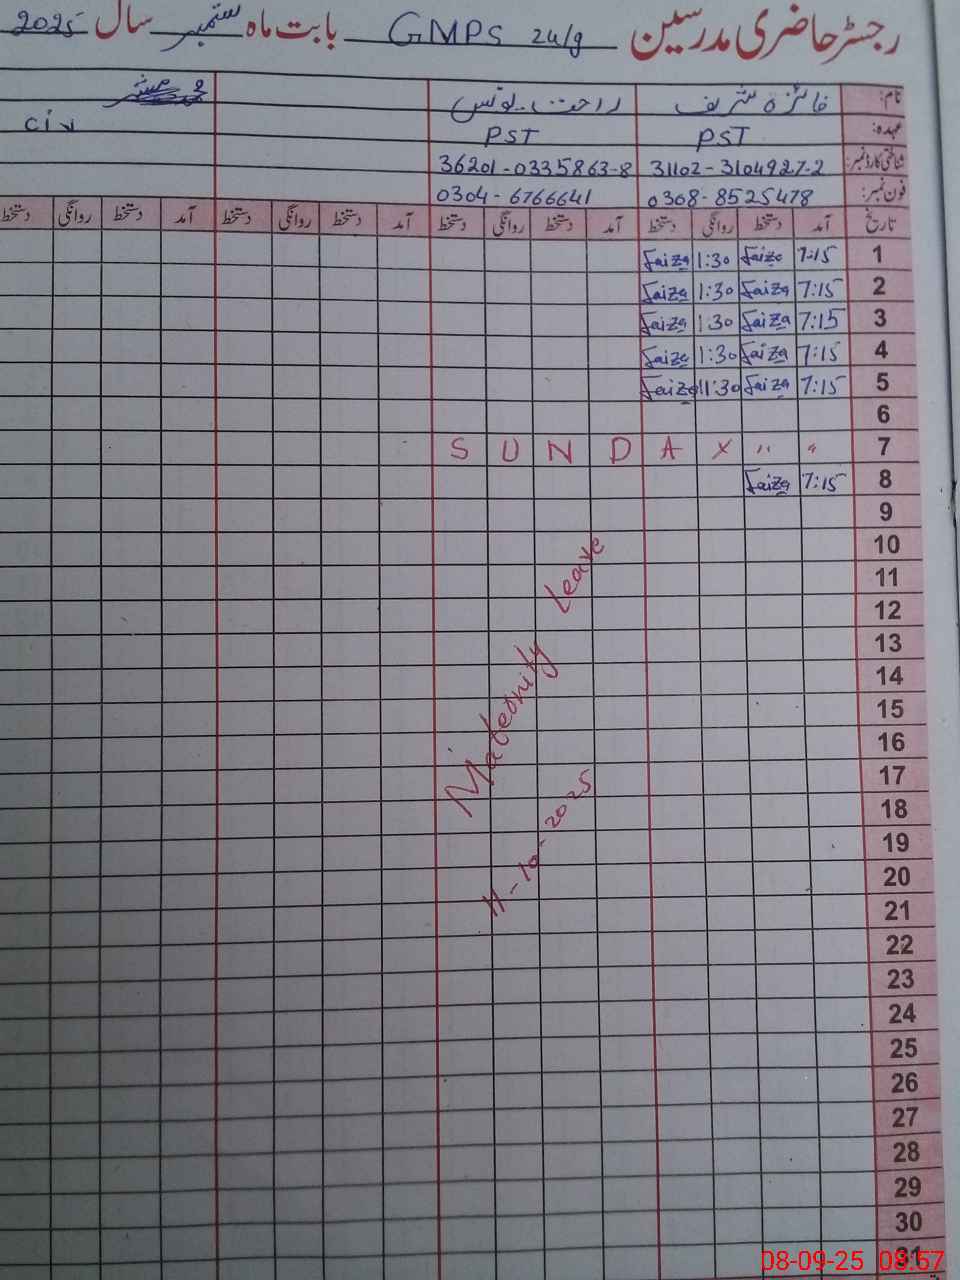 رجسٹر حاضری مدرسین GMPS 24/g بابت ماہ ستمبر سال 2025
نام: فائزہ شریف راحت یونس
عہدہ: PST PST
شناختی کارڈ نمبر: 31102-3104927-2 36201-0335863-8
فون نمبر: 0308-8525478 0304-6766641
تاریخ آمد دستخط روانگی دستخط آمد دستخط روانگی دستخط آمد دستخط روانگی دستخط آمد دستخط روانگی دستخط
1 7:15 Faiza 1:30 Faiza
2 7:15 Faiza 1:30 Faiza
3 7:15 Faiza 1:30 Faiza
4 7:15 Faiza 1:30 Faiza
5 7:15 Faiza 11:30 Faiza
6
7 S U N D A Y " "
8 7:15 Faiza
9
10
11
12
13
14
15
16
17
18
19
20
21
22
23
24
25
26
27
28
29
30
31
Maternity Leave
11-10-2025
08-09-25 08:57